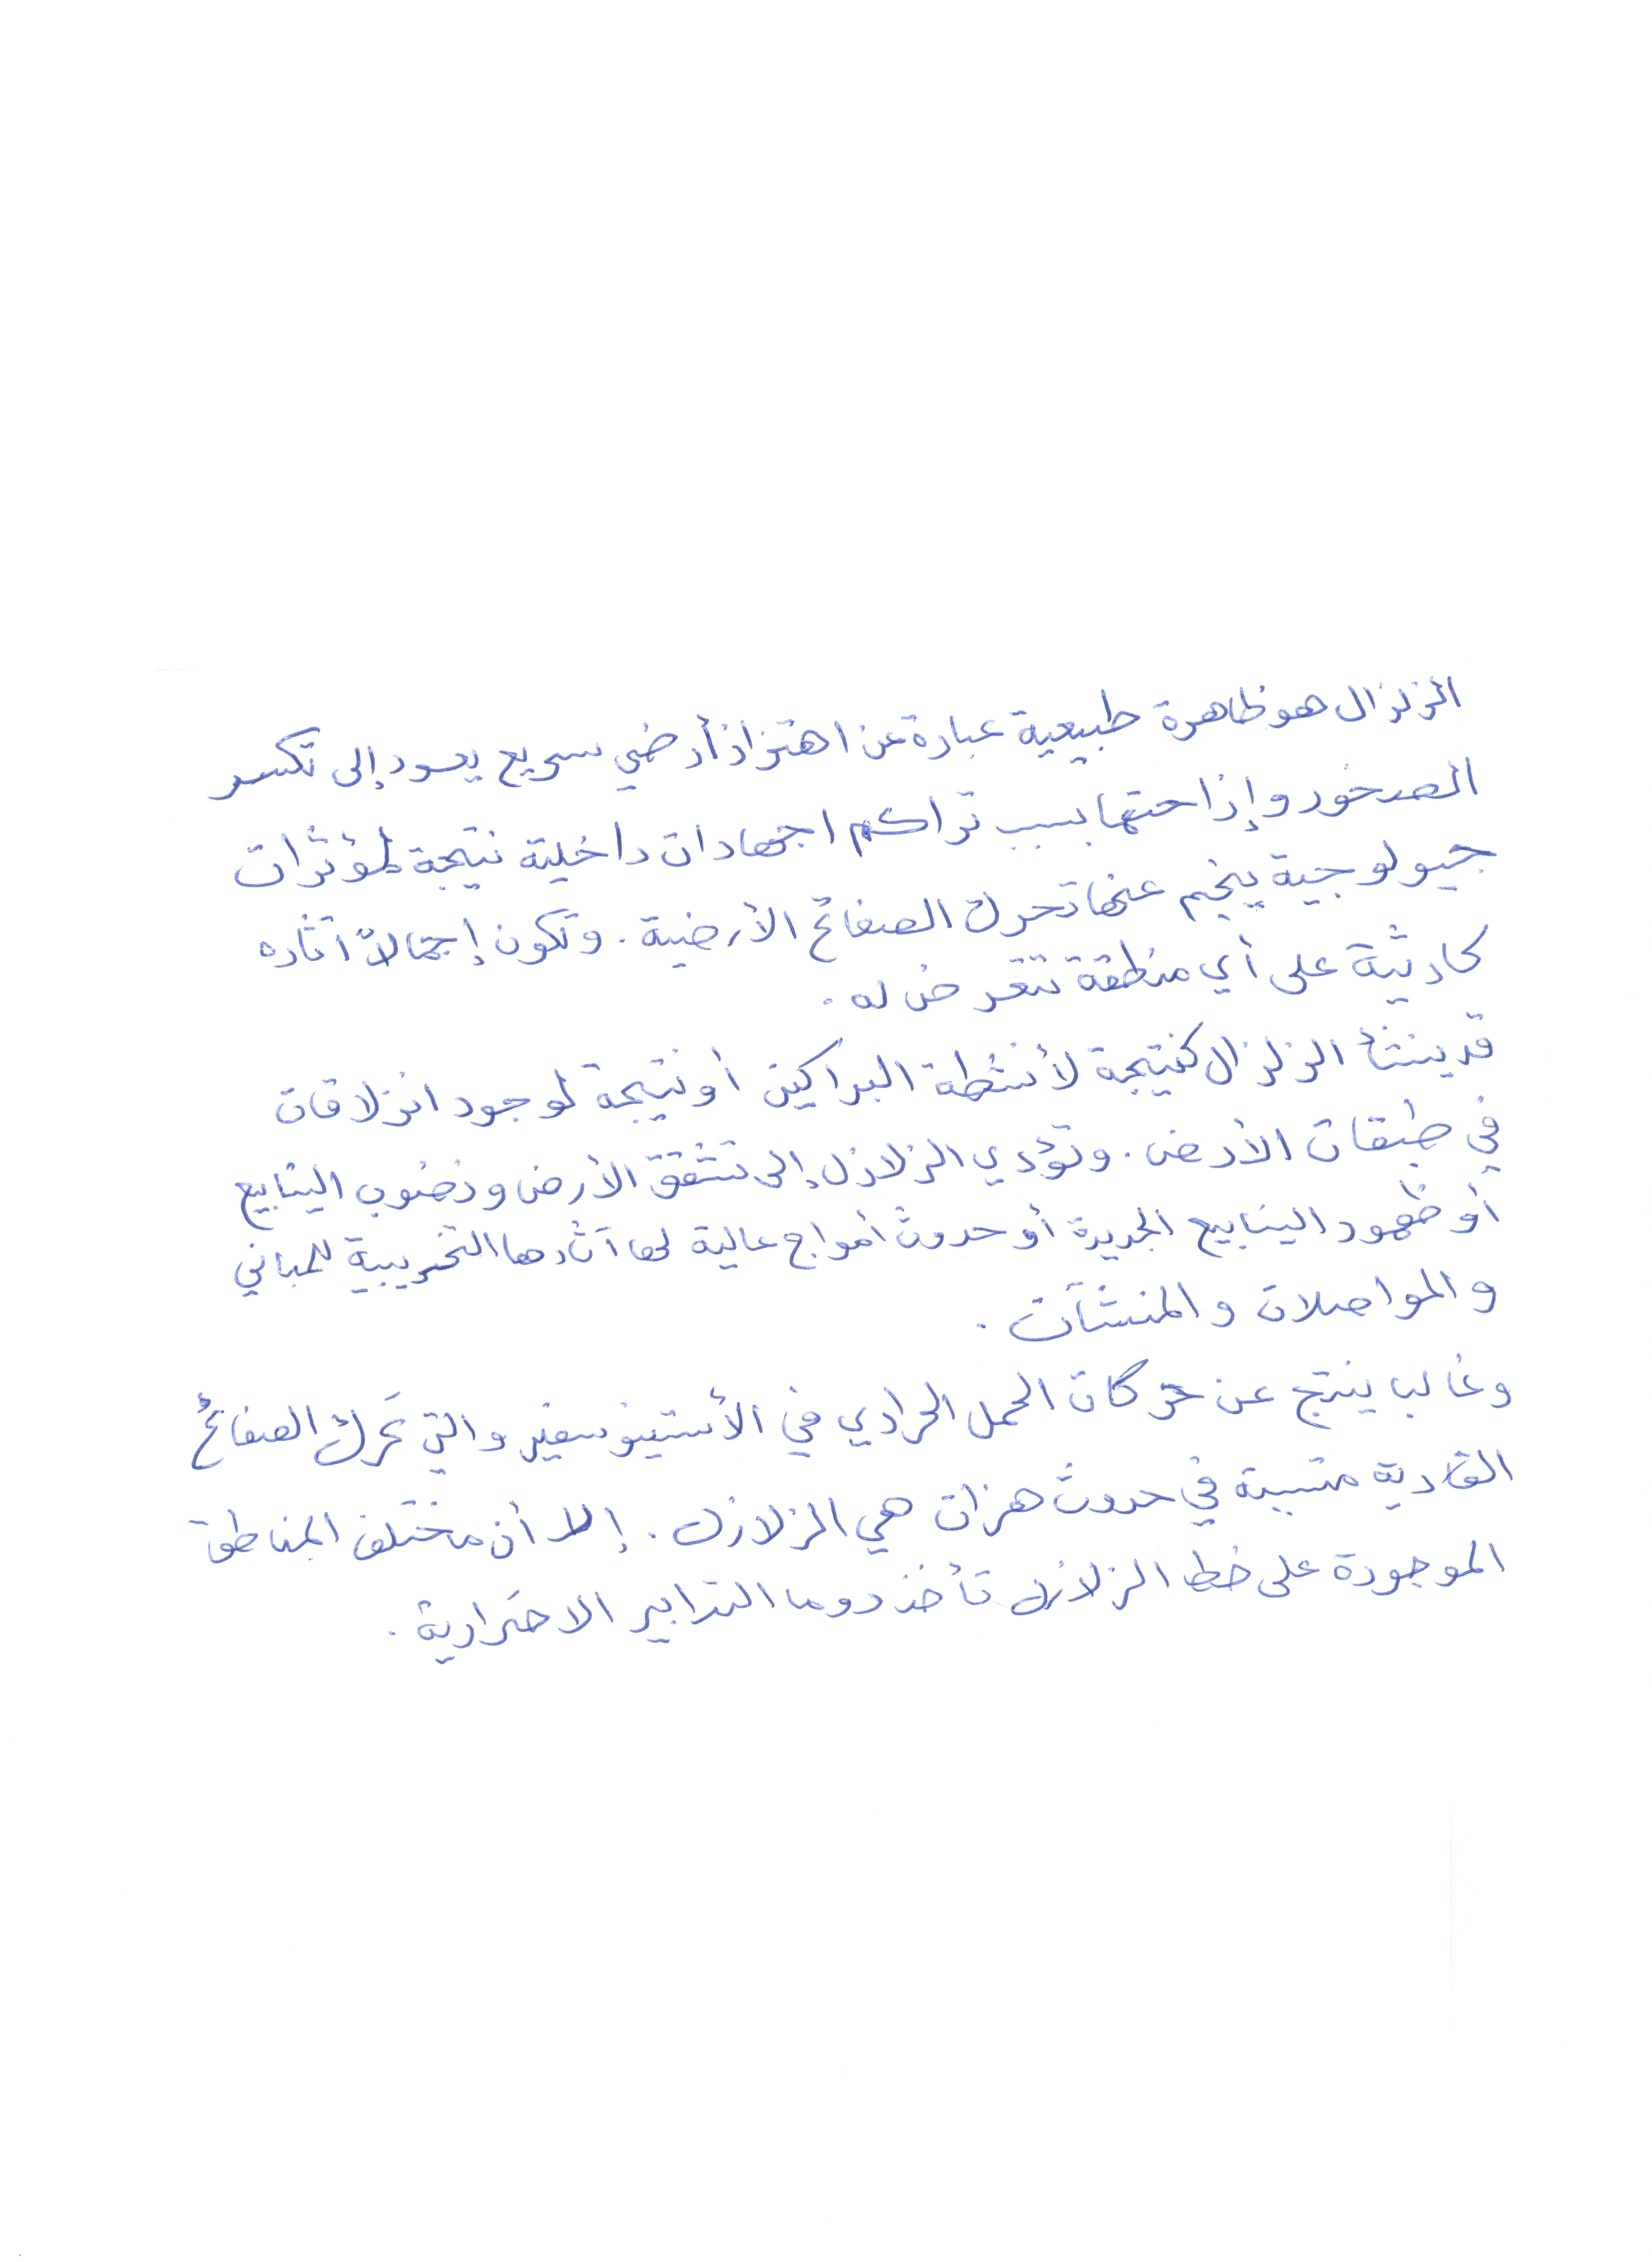 الزلزال هو ظاهرة طبيعية عبارة عن اهتزاز أرضي سريع يعود إلى تكسر
الصخور وإزاحتها بسبب تراكم اجهادات داخلية نتيجة لمؤثرات
جيولوجية ينجم عنها تحرك الصفائح الأرضية. وتكون إجمالاً اثاره
كارثية على أي منطقة تتعرض له.
قد ينشأ الزلزال كنتيجة لأنشطة البراكين أو نتيجة لوجود انزلاقات
في طبقات الأرض. وتؤدي الزلازل إلى تشقق الأرض ونضوب الينابيع
أو ظهور الينابيع الجديدة أو حدوث أمواج عالية لها آثارها التخريبية للمباني
والمواصلات والمنشآت.
وغالب ينتج عن حركات الحمل الحراري في الأستينوسفير والتي تحرك الصفائح
القارية متسببة في حدوث هزات هي الزلازل. إلا أن مختلف المناطق
الموجودة على خط الزلازل تأخذ دوما التدابير الاحترازية.